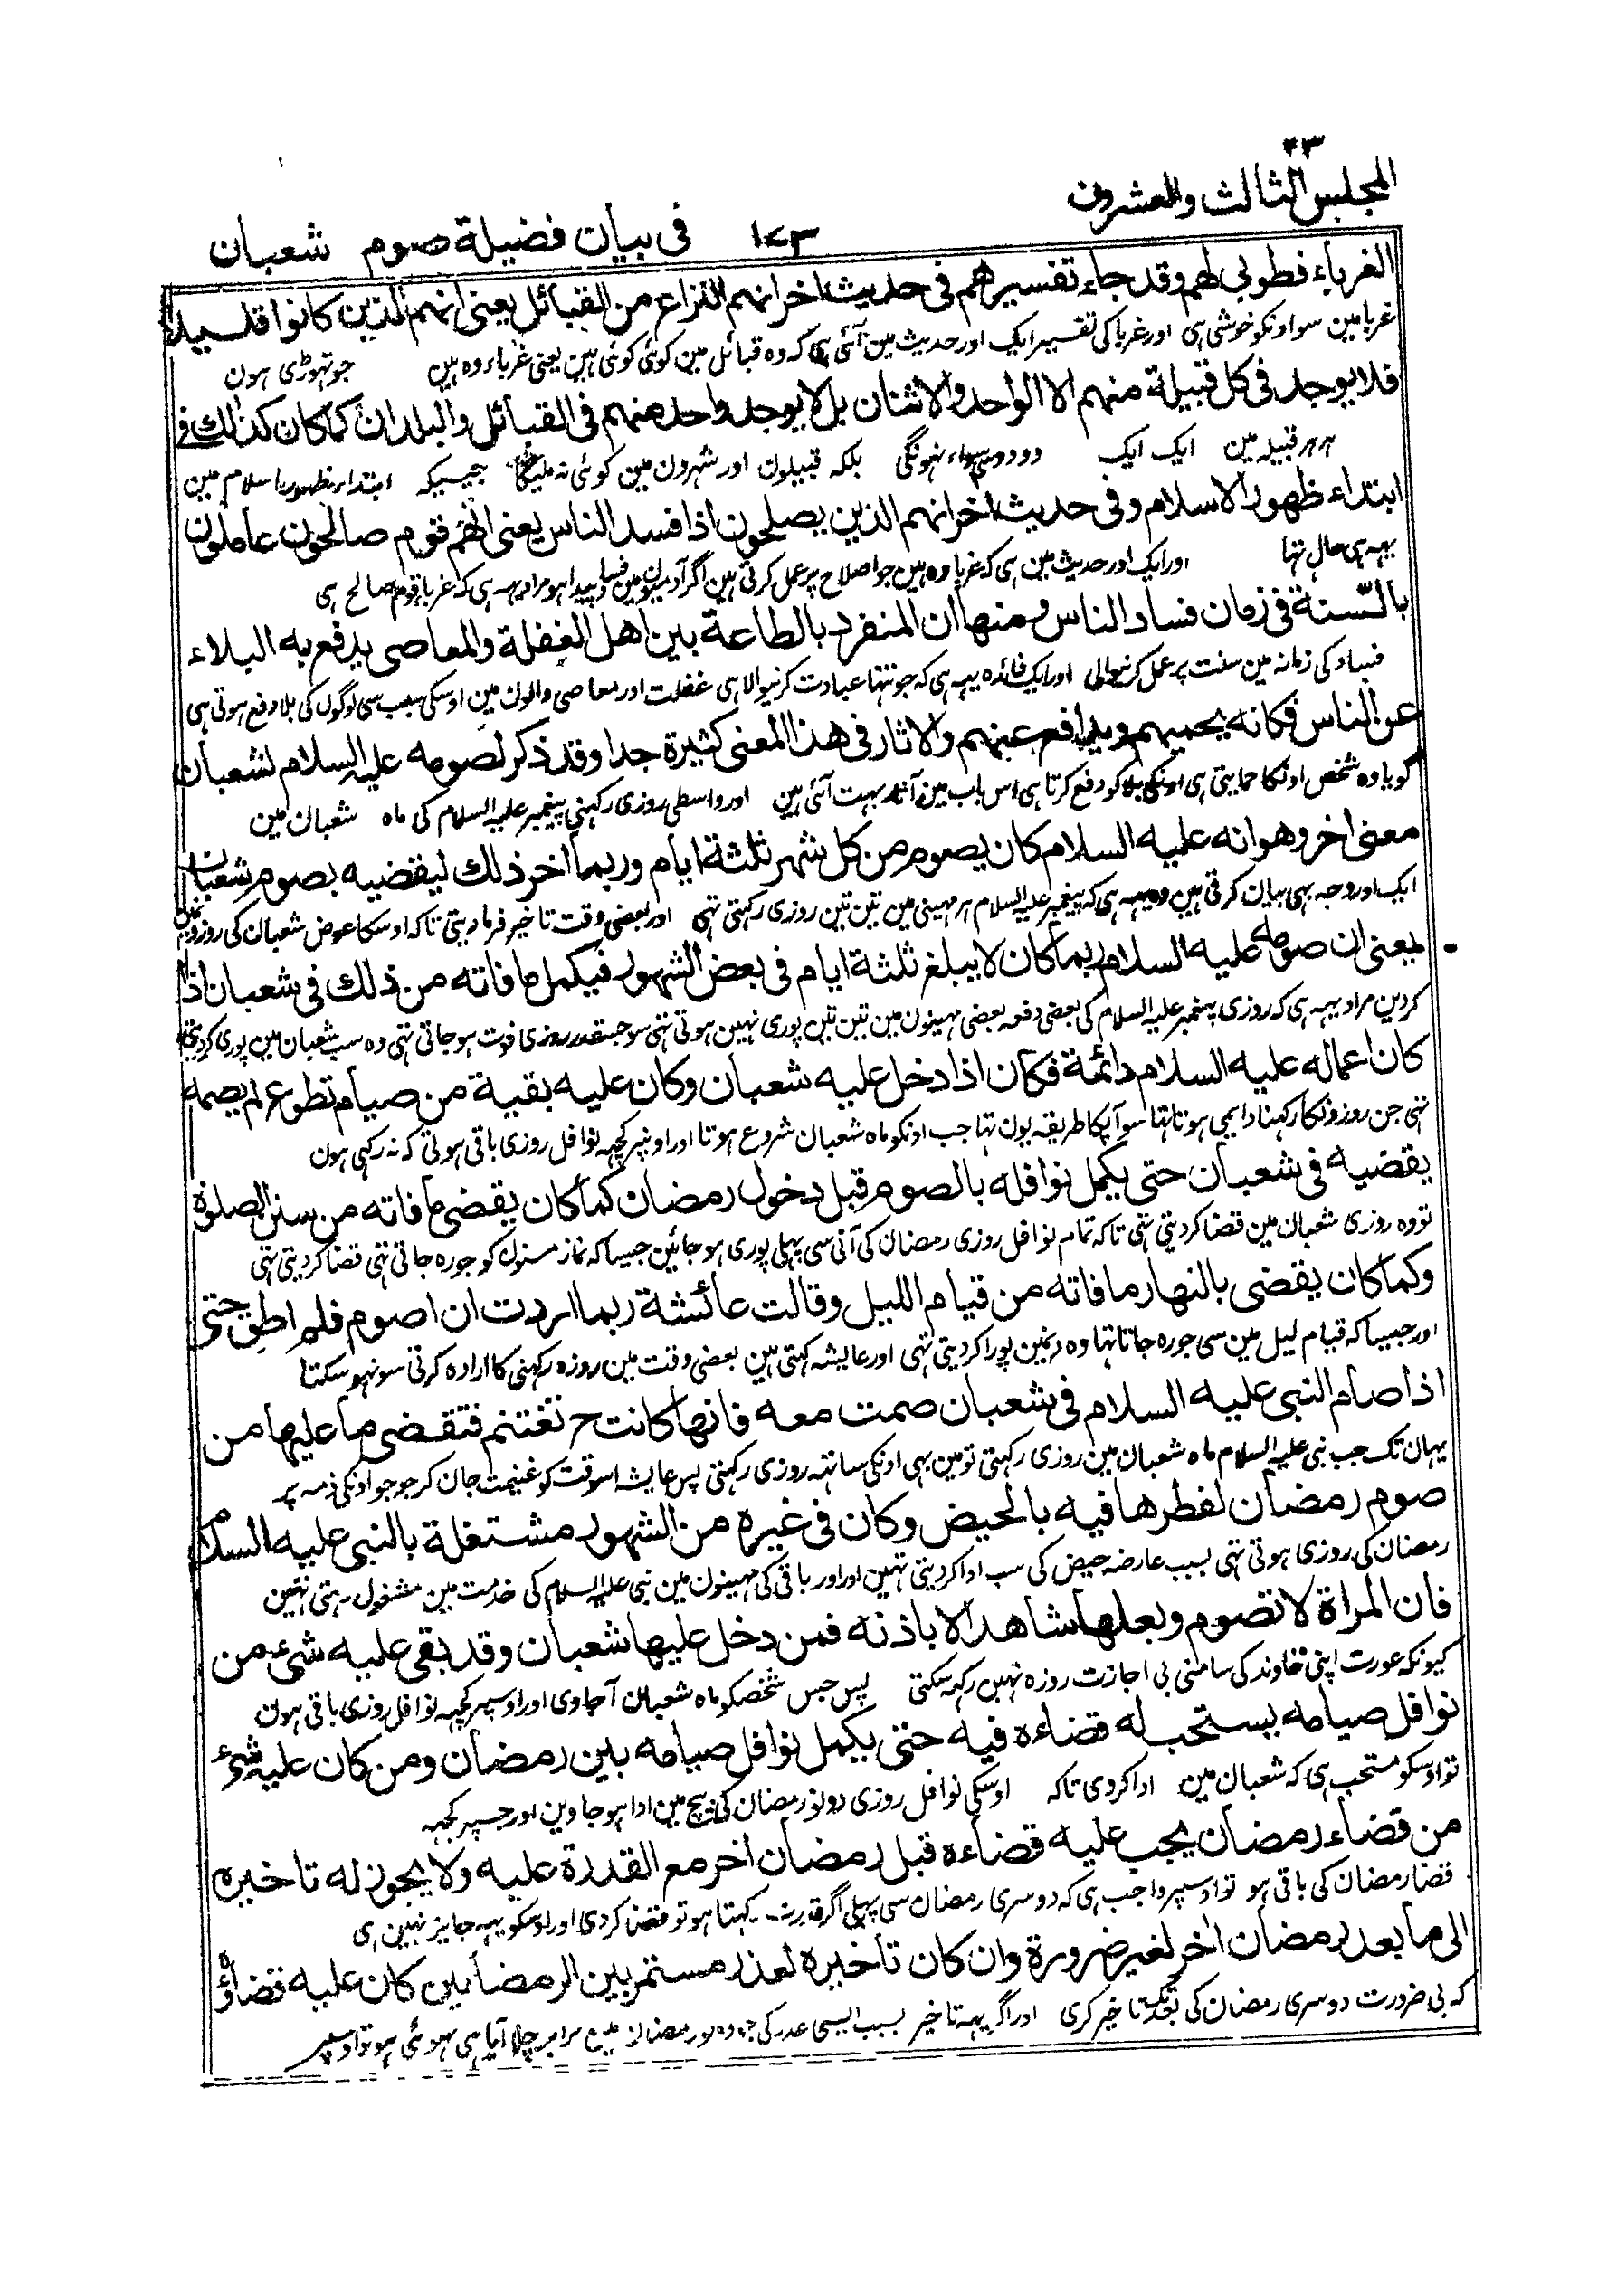 ٢٣
المجلس الثالث والعشرون
١٧٣
فی بیان فضیلة صوم شعبان
الغرباء فطوبی لهم وقد جاء تفسیرهم فی حدیث اخر انهم النزاع من القبائل یعنی انهم الذین کانوا قلیلا
غربا مین سو اونکو خوشی ہی اور غربا کی تفسیر ایک اور حدیث مین آئی ہی کہ وہ قبائل مین کوئی کوئی ہین یعنی غرباء وہ ہین جو تہوڑی ہون
فلا یوجد فی کل قبیلة منهم الا الواحد والاثنان بل لا یوجد واحد منهم فی القبائل والبلدان کما کان کذلک فی
ہر ہر قبیلہ مین ایک ایک دو دو سواء نہونگی بلکہ قبیلون اور شہرون مین کوئی نہ ملیگا جیسیکہ ابتداء ظہور اسلام مین
ابتداء ظهور الاسلام وفی حدیث اخر انهم الذین یصلحون اذا فسد الناس یعنی انهم قوم صالحون عاملون
یہہ ہی حال تہا اور ایک اور حدیث مین ہی کہ غربا وہ ہین جو اصلاح پر عمل کرتی ہین اگر آدمیون مین فساد پیدا ہو مراد یہہ ہی کہ غربا قوم صالح ہی
بالسنة فی زمان فساد الناس ومنها ان المنفرد بالطاعة بین اهل الغفلة والمعاصی یدفع به البلاء
فساد کی زمانہ مین سنت پر عمل کرنیوالی اور ایک فائدہ یہہ ہی کہ جو تنہا عبادت کرنیوالا ہی غفلت اور معاصی والون مین اوسکی سبب سی لوگون کی بلا دفع ہوتی ہی
عن الناس فکانه یحمیهم ویدافع عنهم والاثار فی هذا المعنی کثیرة جدا وقد ذکر لصومه علیه السلام لشعبان
گویا وہ شخص اونکا حمایتی ہی اونکی بلا کو دفع کرتا ہی اس باب مین آثار بہت آئی ہین اور واسطی روزی رکہنی پیغمبر علیہ السلام کی ماہ شعبان مین
معنی اخر وهو انه علیه السلام کان یصوم من کل شهر ثلثة ایام وربما اخر ذلک لیقضیه بصوم شعبان
ایک اور وجہ بہی بیان کرتی ہین وہ یہہ ہی کہ پیغمبر علیہ السلام ہر مہینی مین تین تین روزی رکہتی تہی اور بعضی وقت تاخیر فرما دیتی تاکہ اوسکا عوض شعبان کی روزون مین
یعنی ان صومه علیه السلام ربما کان لا یبلغ ثلثة ایام فی بعض الشهور فیکمل ما فاته من ذلک فی شعبان اذا
کردین مراد یہہ ہی کہ روزی پیغمبر علیہ السلام کی بعضی دفعہ بعضی مہینون مین تین تین پوری نہین ہوتی تہی سو جسقدر روزی فوت ہو جاتی تہی وہ سب شعبان مین پوری کردیتی
کان اعماله علیه السلام دائمة فکان اذا دخل علیه شعبان وکان علیه بقیة من صیام تطوع لم یصمه
تہی جن روزونکا رکہنا دایمی ہوتا تہا سو آپکا طریقہ یون تہا جب اونکو ماہ شعبان شروع ہوتا اور اونپر کچہہ نوافل روزی باقی ہوتی کہ نہ رکہی ہون
یقضیه فی شعبان حتی یکمل نوافله بالصوم قبل دخول رمضان کما کان یقضی ما فاته من سنن الصلوة
تو وہ روزی شعبان مین قضا کردیتی تہی تاکہ تمام نوافل روزی رمضان کی آنی سی پہلی پوری ہو جائین جیسا کہ نماز مسنون کو جو رہ جاتی تہی قضا کردیتی تہی
وکما کان یقضی بالنهار ما فاته من قیام اللیل وقالت عائشة ربما اردت ان اصوم فلم اطق حتی
اور جیسا کہ قیام لیل مین سی جو رہ جاتا تہا وہ دنمین پورا کردیتی تہی اور عایشہ کہتی ہین بعضی وقت مین روزہ رکہنی کا ارادہ کرتی سو نہو سکتا
اذا صام النبی علیه السلام فی شعبان صمت معه فانها کانت ح تغتنم فتقضی ما علیها من
یہان تک جب نبی علیہ السلام ماہ شعبان مین روزی رکہتی تو مین بہی اونکی ساتہہ روزی رکہتی پس عایشہ اسوقت کو غنیمت جان کر جو جو اونکی ذمہ پر
صوم رمضان لفطرها فیه بالحیض وکان فی غیره من الشهور مشتغلة بالنبی علیه السلام
رمضان کی روزی ہوتی تہی بسبب عارضہ حیض کی سب ادا کردیتی تہین اور اور باقی کی مہینون مین نبی علیہ السلام کی خدمت مین مشغول رہتی تہین
فان المراة لا تصوم وبعلها شاهد الا باذنه فمن دخل علیها شعبان وقد بقی علیه شیء من
کیونکہ عورت اپنی خاوند کی سامنی بی اجازت روزہ نہین رکہہ سکتی پس جس شخصکو ماہ شعبان آجاوی اور اوسپر کچہہ نوافل روزی باقی ہون
نوافل صیامه یستحب له قضاءه فیه حتی یکمل نوافل صیامه بین رمضان ومن کان علیه شیء
تو اوسکو مستحب ہی کہ شعبان مین ادا کردی تاکہ اوسکی نوافل روزی دونو رمضان کی بیچ مین ادا ہو جاوین اور جسپر کچہہ
من قضاء رمضان یجب علیه قضاءه قبل رمضان اخر مع القدرة علیه ولا یجوز له تاخیره
قضا رمضان کی باقی ہو تو اوسپر واجب ہی کہ دوسری رمضان سی پہلی اگر قدرت رکہتا ہو تو قضا کردی اور اوسکو یہہ جایز نہین ہی
الی ما بعد رمضان اخر لغیر ضرورة وان کان تاخیره لعذر مستمر بین الرمضانین کان علیه قضاؤه
کہ بی ضرورت دوسری رمضان کی بعد تک تاخیر کری اور اگر یہہ تاخیر بسبب ایسی عذر کی جو دونو رمضان مین برابر چلا آیا ہی ہوئی ہو تو اوسپر